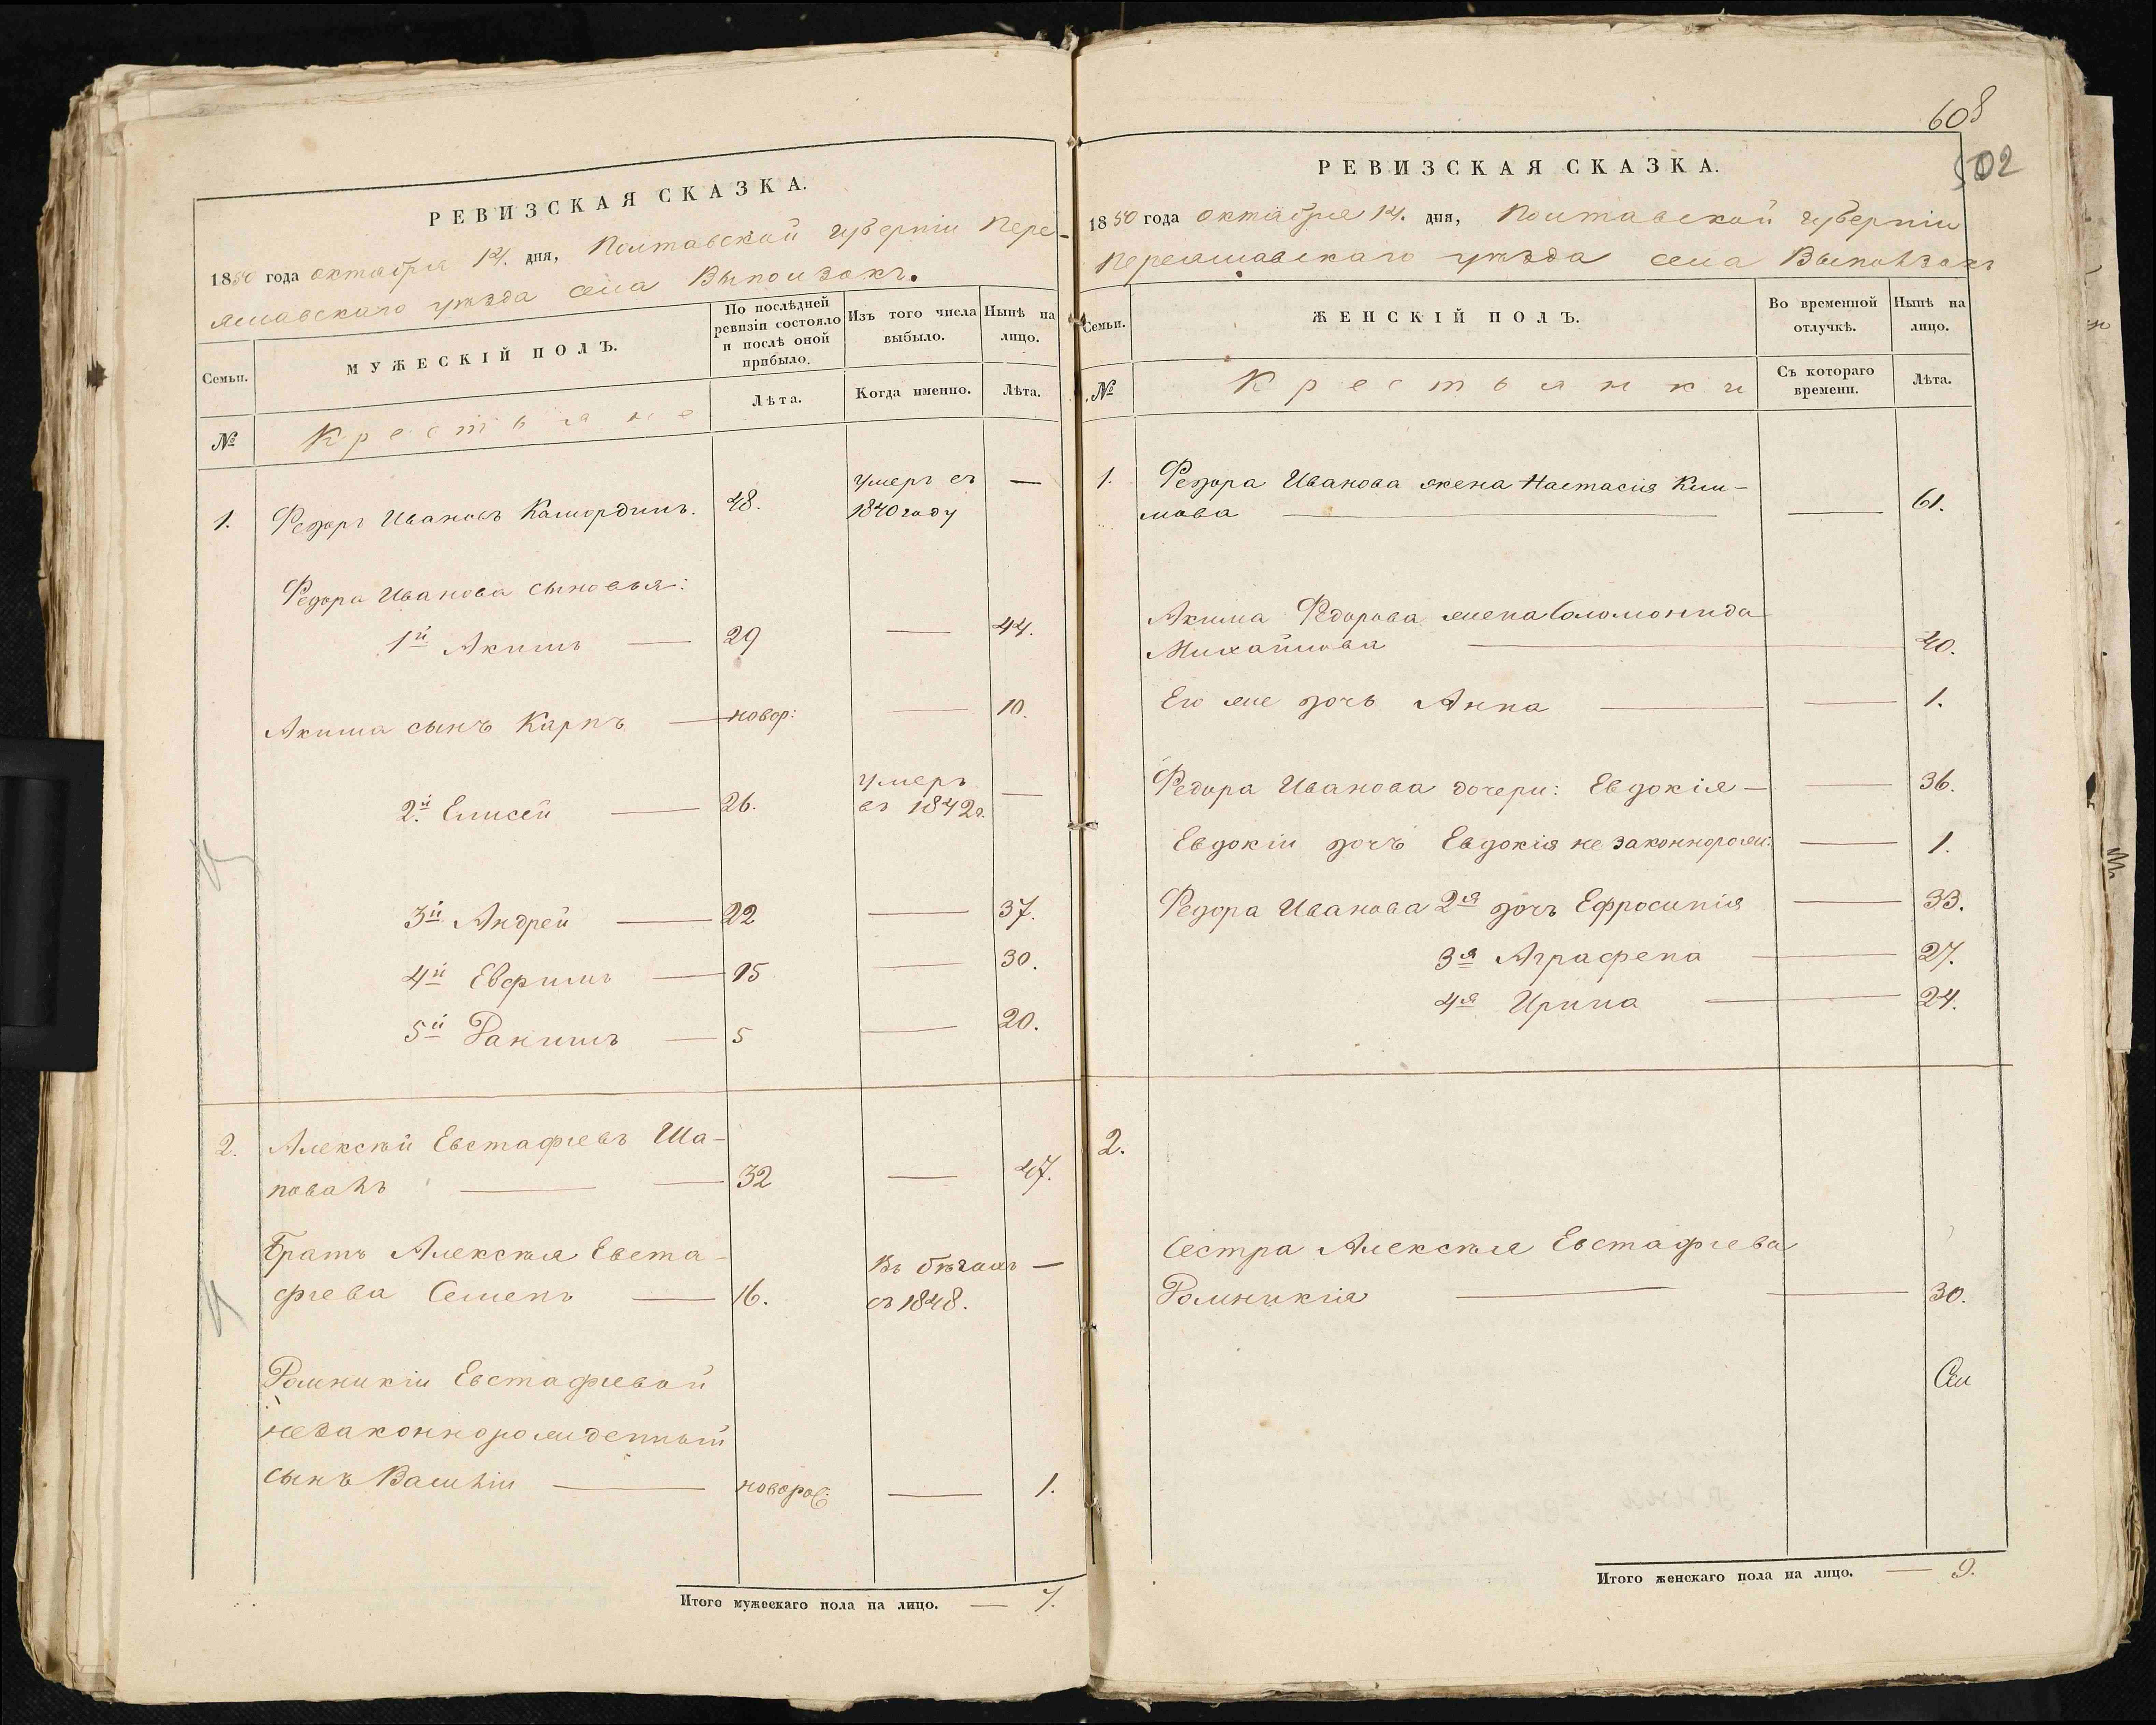 РЕВИЗСКАЯ СКАЗКА.
1850 года октября 14. дня, Полтавской губерніи Пере-
яславскаго уѣзда села Выползокъ.
Семьи.
МУЖЕСКІЙ ПОЛЪ.
По послѣдней
ревизіи состояло
и послѣ оной
прибыло.
Изъ того числа
выбыло.
Нынѣ на
лицо.
№
Крестьяне
Лѣта.
Когда именно.
Лѣта.
1. Федоръ Ивановъ 48. умеръ въ —
1840 году
Федора Иванова сыновья:
1й Акимъ — 29 — 44.
Акима сынъ Карпъ — новор: — 10.
2й Елисей — 26. умеръ —
въ 1842г.
3й Андрей — 22 — 37.
4й Евфимъ — 15 — 30.
5й — 5 — 20.
2. Алексѣй Евстафіевъ Ша-
повалъ — 32 — 47.
Братъ Алексѣя Евста-
фіева Семенъ — 16. Въ бѣгахъ —
съ 1848.
Домникіи Евстафіевой
незаконнорожденный
сынъ Василій — новорож: — 1.
Итого мужескаго пола на лицо. — 7.
608
502
РЕВИЗСКАЯ СКАЗКА.
1850 года октября 14. дня, Полтавской губерніи
Переяславскаго уѣзда села Выползокъ
Семьи.
ЖЕНСКІЙ ПОЛЪ.
Во временной
отлучкѣ.
Нынѣ на
лицо.
№
Крестьянки
Съ котораго
времени.
Лѣта.
1. Федора Иванова жена Настасія Кли-
мова — — 61.
Акима Федорова жена Соломонида
Михайлова — 40.
Его же дочь Анна — — 1.
Федора Иванова дочери: Евдокія — — 36.
Евдокіи дочь Евдокія не законнорож: — 1.
Федора Иванова 2я дочь Ефросинія — 33.
3я Аграфена — 27.
4я Ирина — 24.
2.
Сестра Алексѣя Евстафіева
Домникія — — 30.
Итого женскаго пола на лицо. — 9.